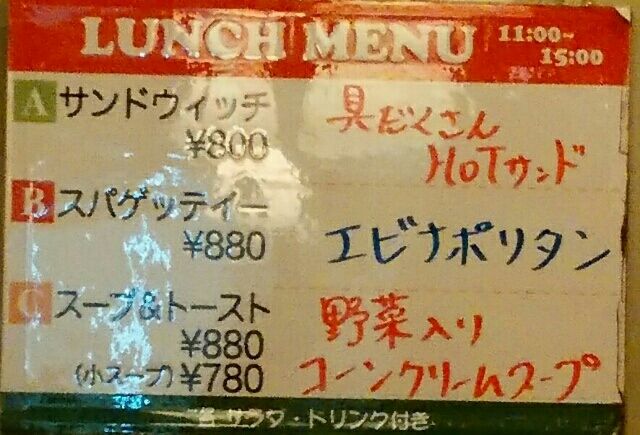 LUNCH MENU 11:00~
15:00
A サンドウィッチ
¥800
具だくさん
HOTサンド
B スパゲッティー
¥880
エビナポリタン
C スープ&トースト
¥880
(小スープ)¥780
野菜入り
コーンクリームスープ
各 サラダ・ドリンク付き